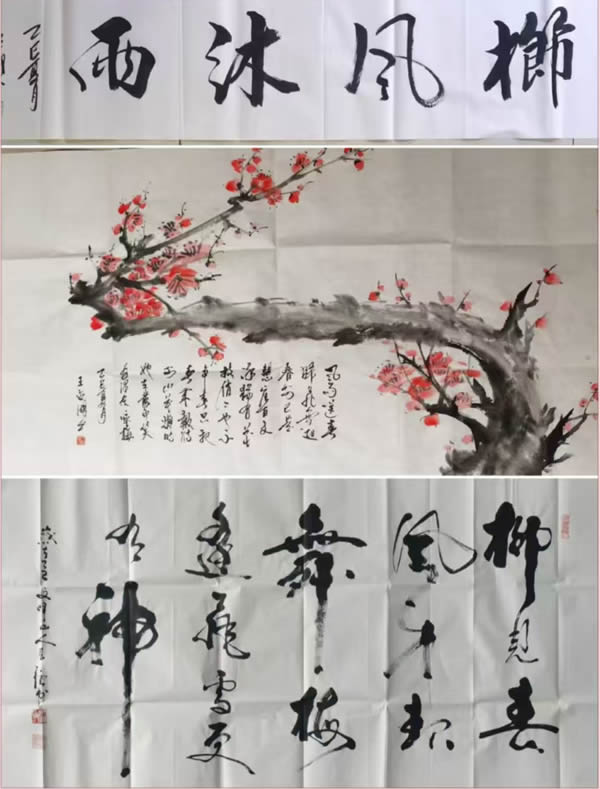 櫛風沐雨
乙巳夏月
风雨送春
归飞雪迎
春到已是
悬崖百丈
冰犹有花
枝俏俏也不
争春只把
春来报待
到山花烂漫时
她在丛中笑
毛泽东咏梅
乙巳夏月
王
柳见春
风才起
舞梅
逢飞雪更
有神